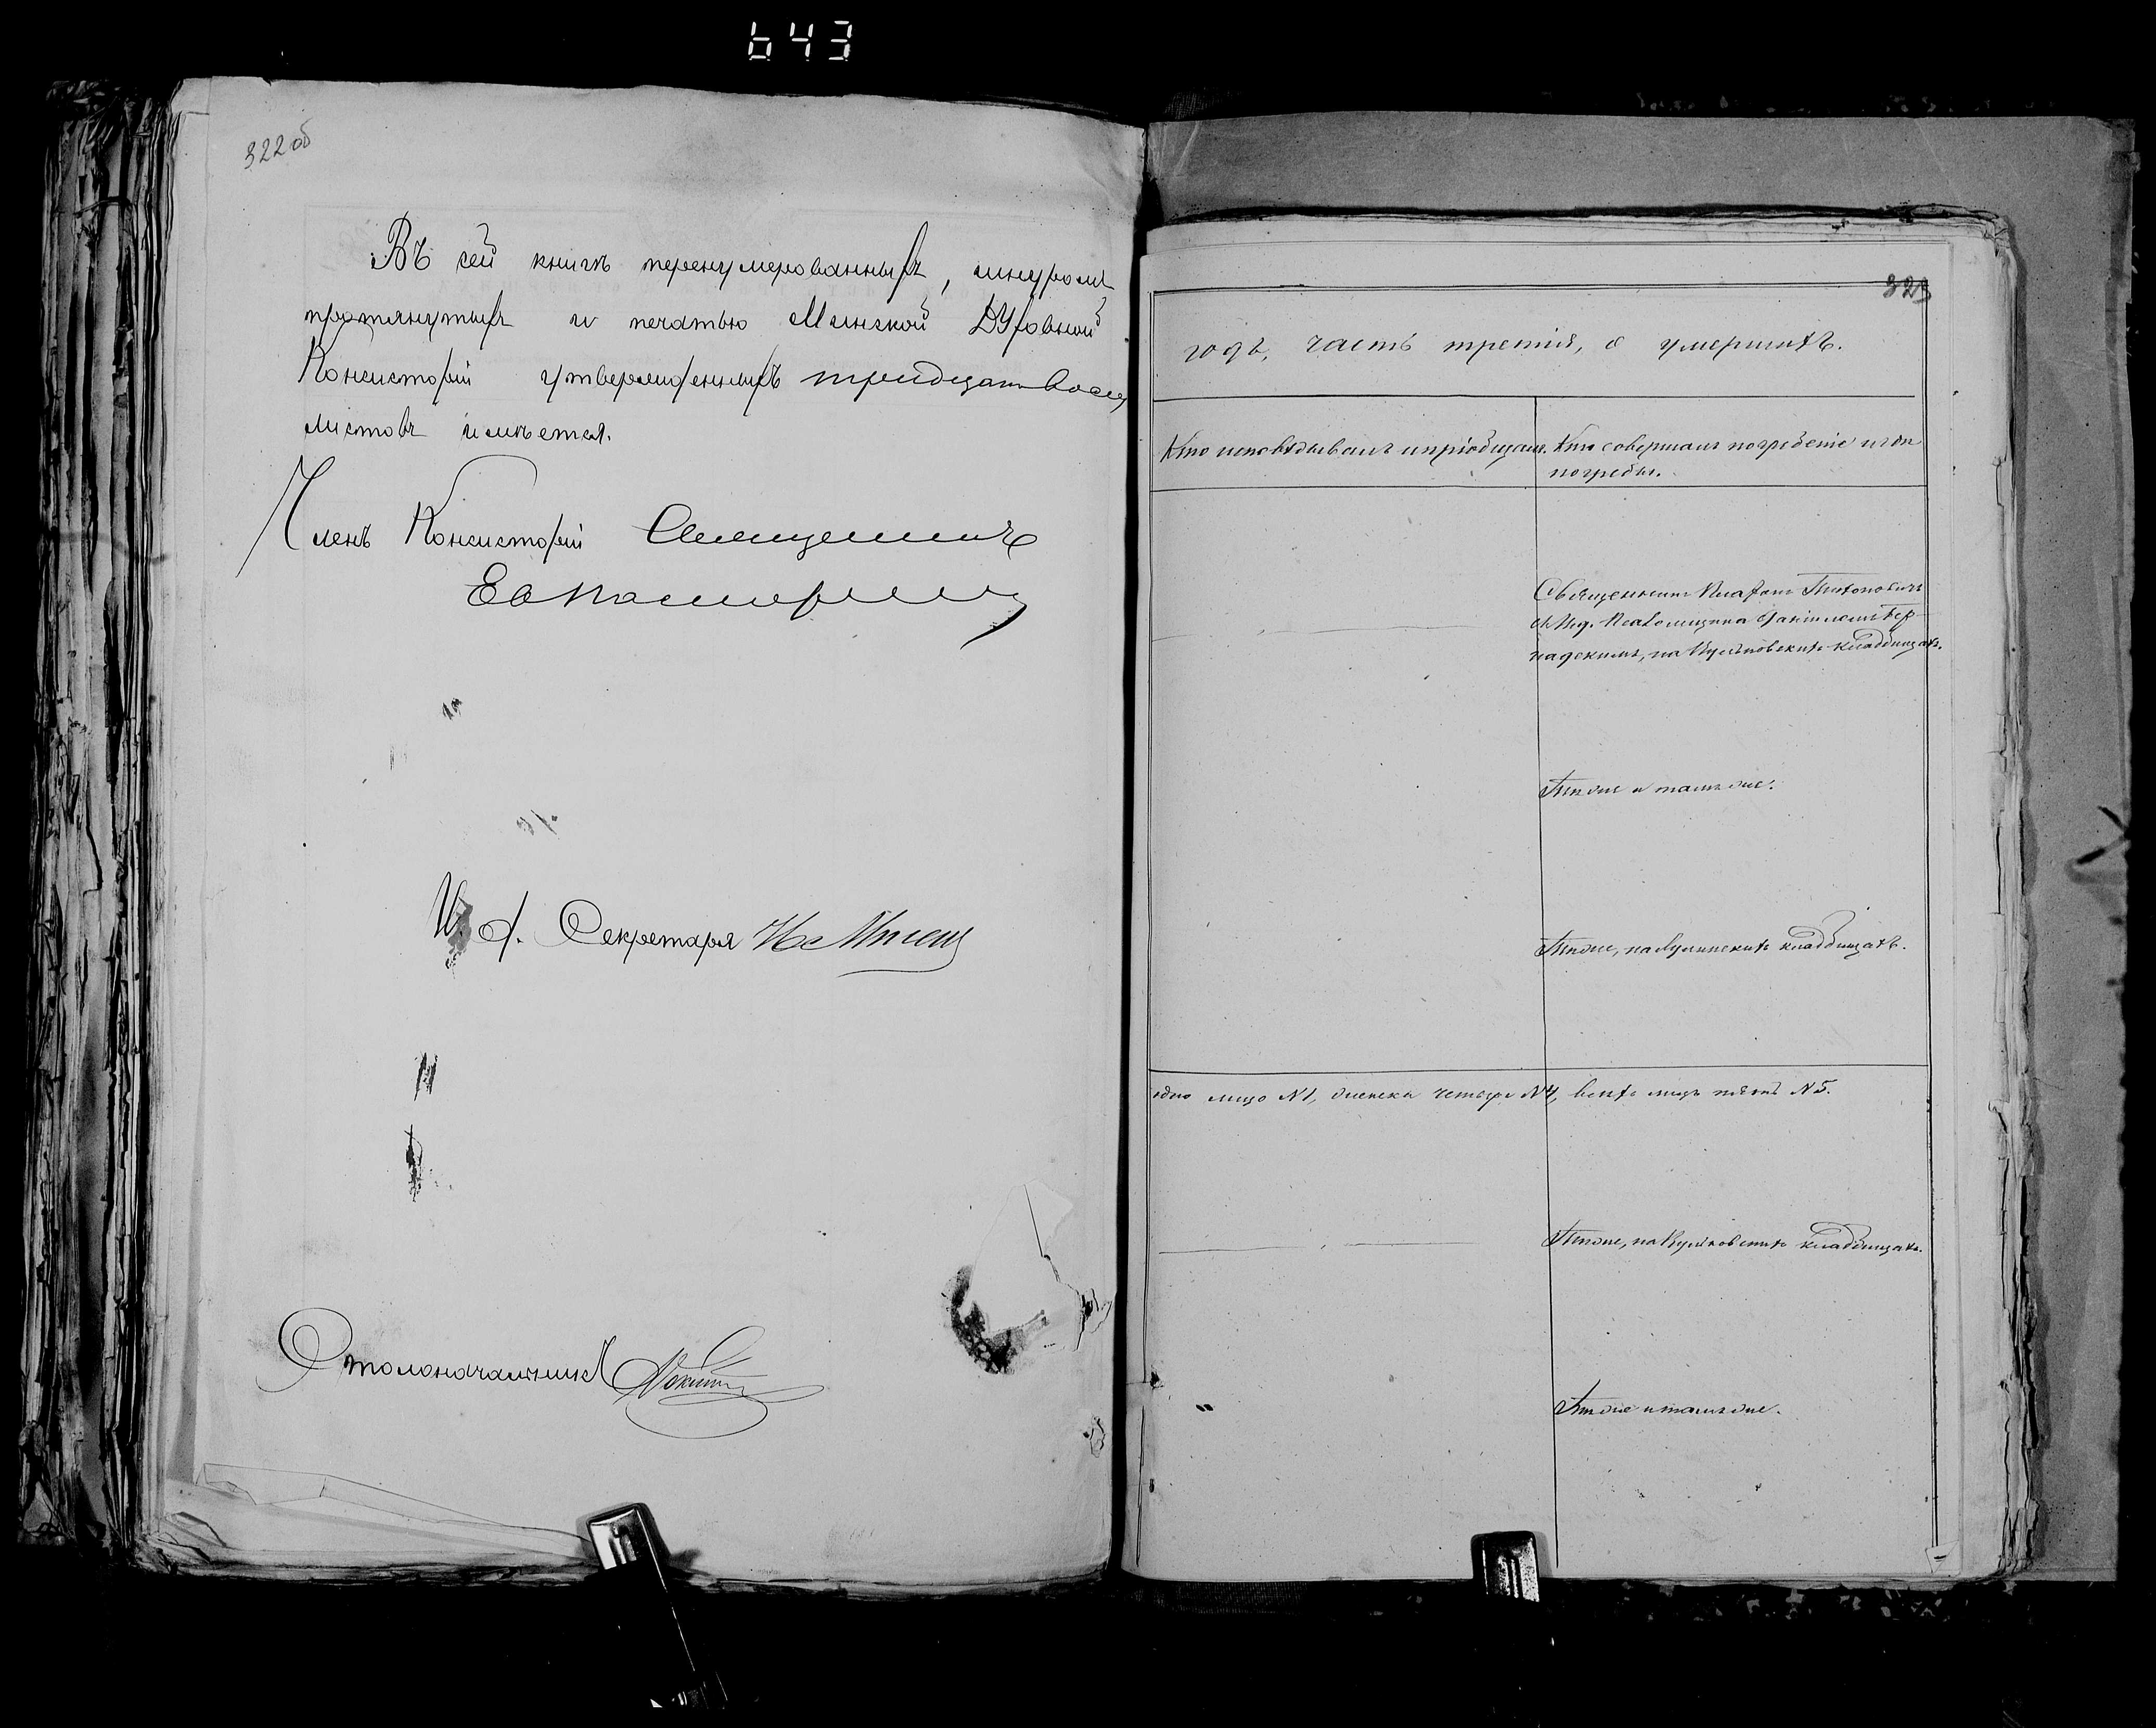 643
322 об
Въ сей книгѣ перенумерованныхъ, шнуромъ
протянутыхъ и печатью Минской Духовной
Консисторіи утвержденныхъ тридцать восемь
листовъ имѣется.
Членъ Консисторіи Священникъ
И. д. Секретаря
Столоначальникъ
323
годъ, часть третія, о умершихъ.
Кто исповѣдывалъ и пріобщалъ.
Кто совершалъ погребеніе и гдѣ
погребены.
Священникъ Платонъ Тихоновичъ
съ и. д. Псаломщика
на кладбищахъ.
Тѣ же и тамъ же.
Тѣ же, на кладбищахъ.
одно лицо №1, женска четыре №4, всѣхъ лицъ пять №5.
Тѣ же, на кладбищахъ.
"
Тѣ же и тамъ же.